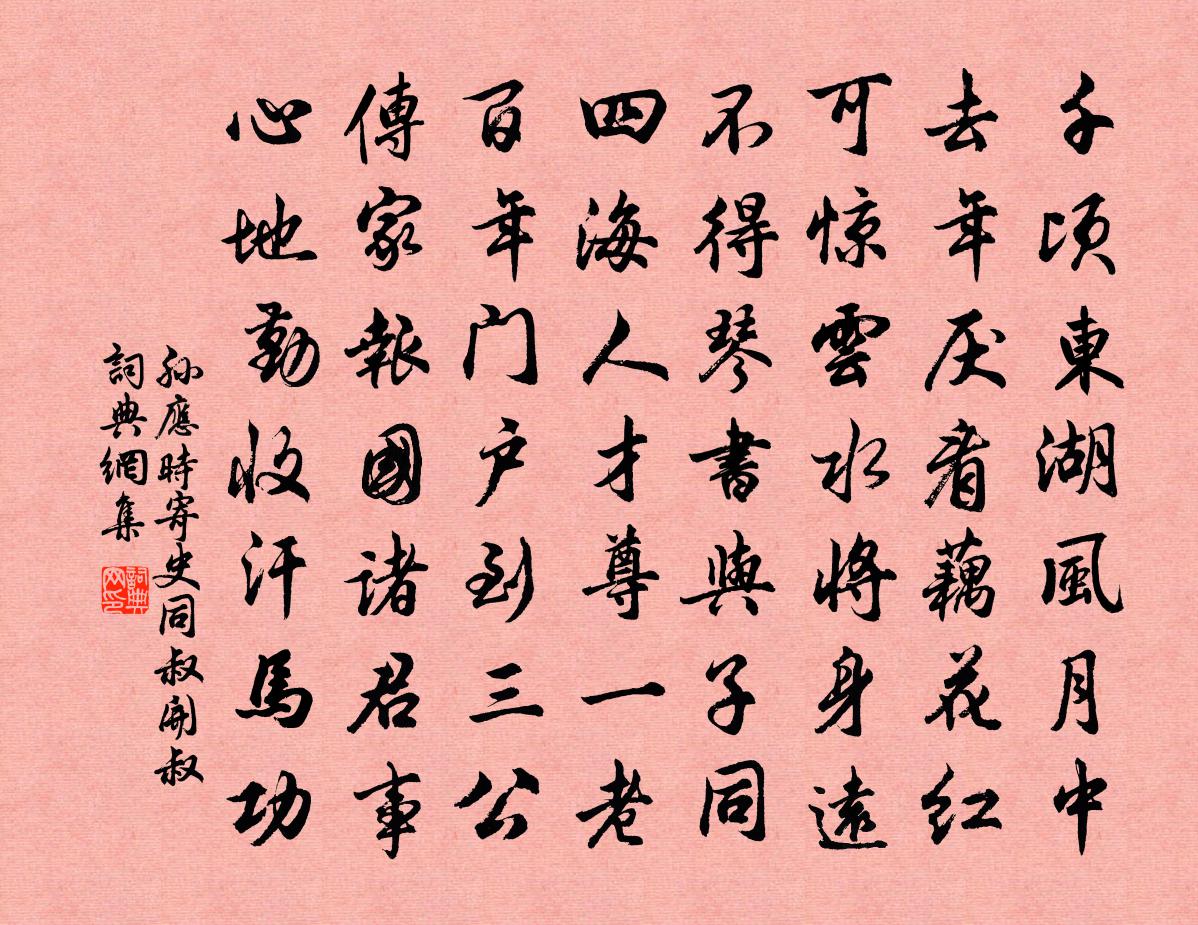 千頃東湖風月中
去年厌看藕花红
可惊雲水將身遠
不得琴書與子同
四海人才尊一老
百年门户到三公
傳家報國諸君事
心地勤收汗馬功
孙應時寄史同叔開叔
詞典網集
詞典网印